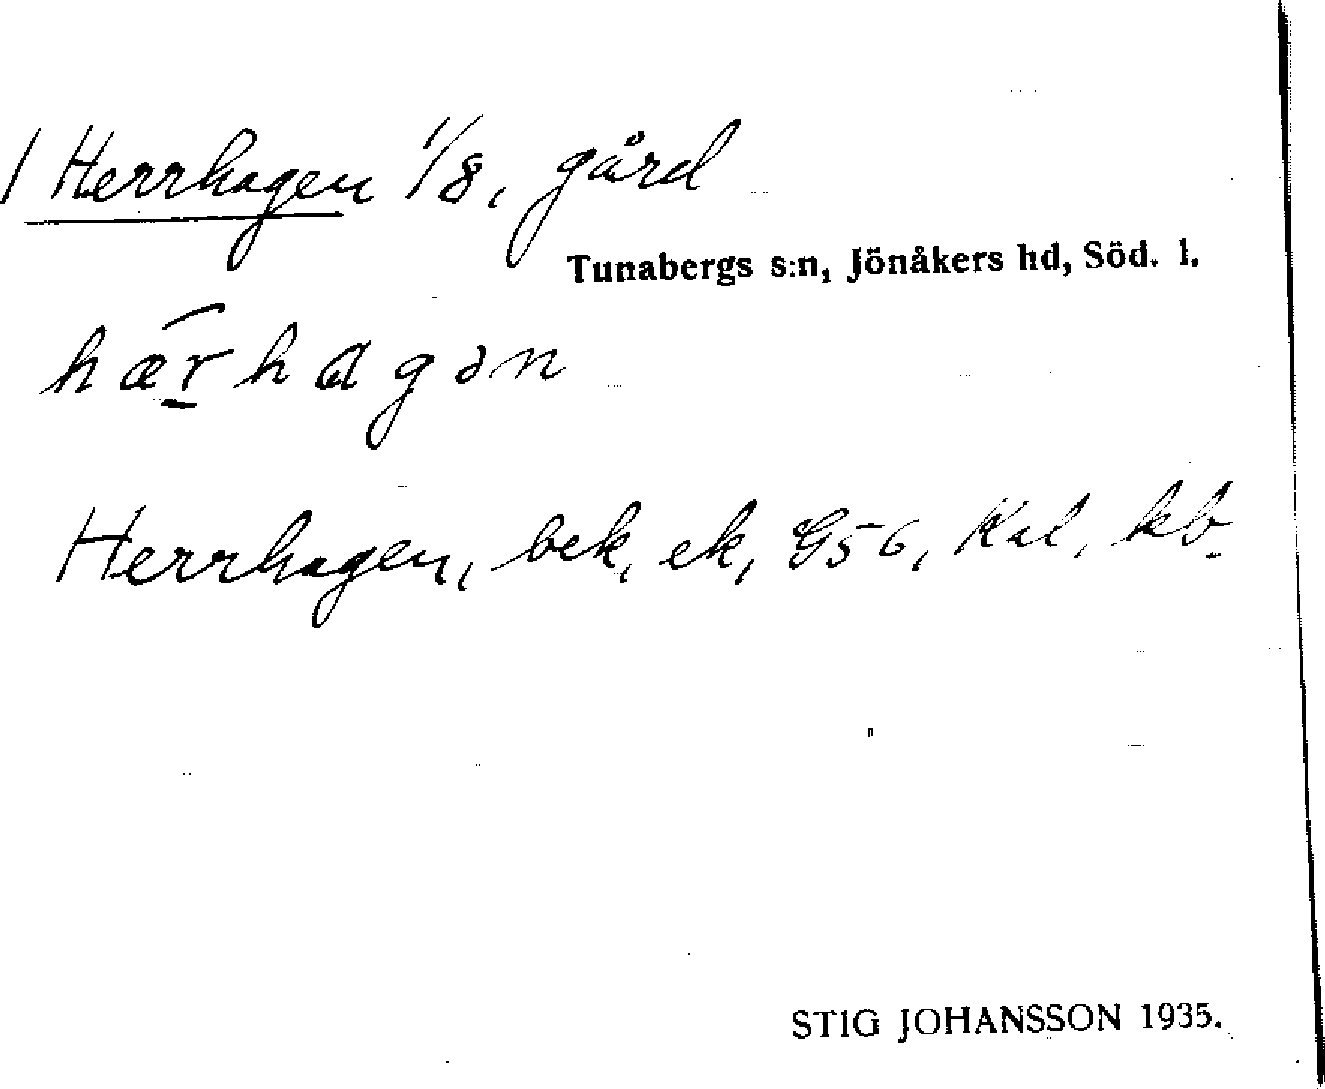 / Herrhagen 1/8, gård
Tunabergs s:n, Jönåkers hd, Söd. l.
hær̲hagən
Herrhagen, bek, ek, G56, Kal, kb.
STIG JOHANSSON 1935.